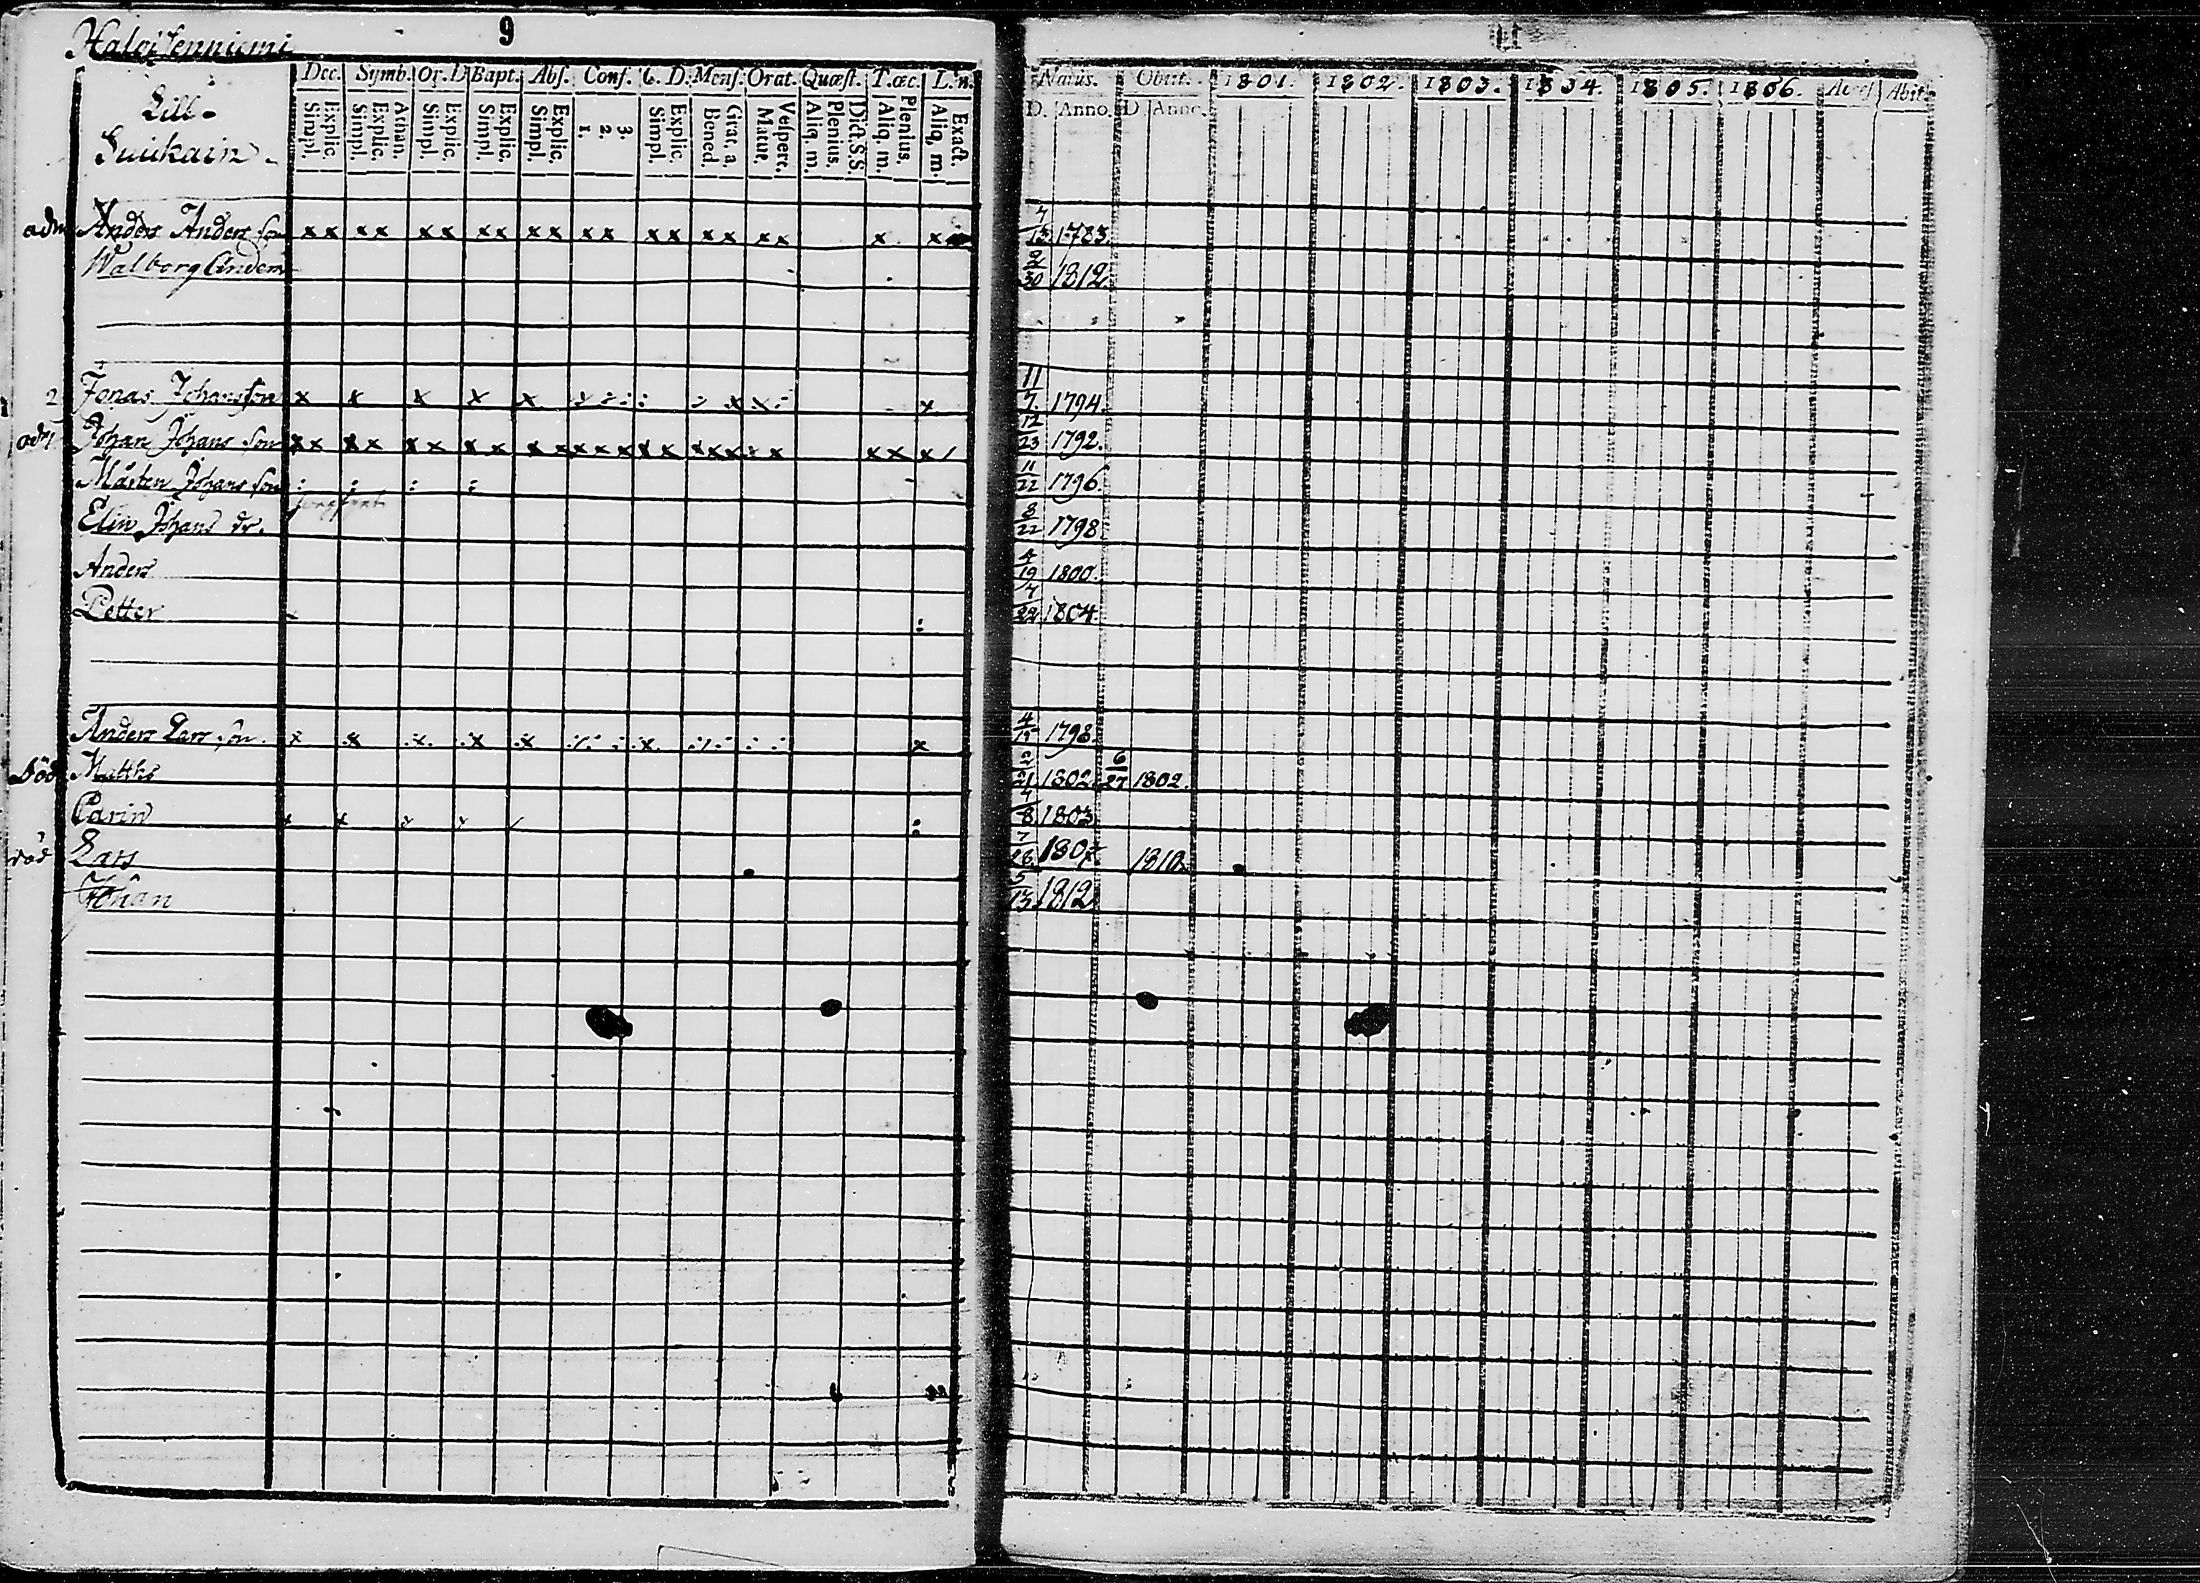 9
Lill-
Dec. Symb. Or. D. Bapt. Abs. Conf. C. D. Mens. Orat. Quæst. T. œc. L. n.
Explic. Simpl. Athan. Explic. Simpl. Explic. Simpl. Explic. Simpl. Explic. Simpl. 3. 2. 1. Explic. Simpl. Grat. a. Bened. Vespert. Matut. Dict. S. S. Plenius. Aliq. m. Plenius. Aliq. m. Exact. Aliq. m.
Natus. Obiit. 1801. 1802. 1803. 1804. 1805. 1806. Acces Abit
D. Anno. D Anno.
adm Anders Anders son xx xx xx xx xx xx xx xx xx x x 4/13 1783.
Walborg 2/30 1812
2 Jonas Johansson x x x x x x 11/7 1794.
Johan Johans son xx xx xx xx xx xxx xx 12/23 1792.
Mårten Johans son : : : : 11/22 1796.
Elin Johans dr. 8/22 1798.
Anders 4/19 1800.
Petter : 1804.
Anders Lars son x x x x x x x 4/15 1798.
död Matths 2/21 1802. 6/27 1802.
Carin : 4/8 1803
död Lars 7/26 1807 1810
Johan 5/13 1812